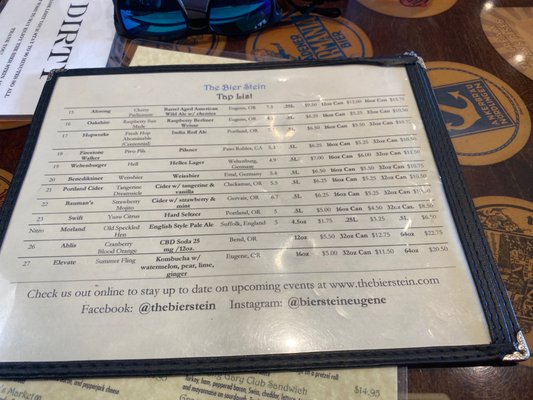 DIRTY
The Bier Stein
Tap List
15 Alesong Cherry Parliament Barrel Aged American Wild Ale w/ cherries Eugene, OR 7.3 .25L $9.50 12oz Can $12.00 16oz Can $15.75
16 Oakshire Raspberry Sun Made Raspberry Berliner Weisse Eugene, OR .5L $6.25 16oz Can $5.25 32oz Can $10.50
17 Hopworks Fresh Hop Abominable (Centennial) India Red Ale Portland, OR .5L $6.50 16oz Can $5.50 32oz Can $10.75
18 Firestone Walker Pivo Pils Pilsener Paso Robles, CA 5.1 .5L $6.25 16oz Can $5.25 32oz Can
19 Weltenburger Hell Helles Lager Weltenburg, Germany 4.9 .5L $7.00 16oz Can $6.00 32oz Can $11.50
20 Benediktiner Weissbier Weissbier Ettal, Germany 5.4 .5L $6.50 16oz Can $5.50 32oz Can $10.75
21 Portland Cider Tangerine Dreamsicle Cider w/ tangerine & vanilla Clackamas, OR 5.5 .5L $6.25 16oz Can $5.25 32oz Can
22 Bauman's Strawberry Mojito Cider w/ strawberry & mint Gervais, OR 6.7 .5L $6.25 16oz Can $5.25 32oz Can
23 Swift Yuzu Citrus Hard Seltzer Portland, OR 5 .5L $5.00 16oz Can $4.50 32oz Can $8.50
Nitro Morland Old Speckled Hen English Style Pale Ale Suffolk, England 5 4.5oz $1.75 .25L $3.25 .5L $6.50
26 Ablis Cranberry Blood Orange CBD Soda 25 mg /12oz. Bend, OR 12oz $5.50 32oz $12.75 64oz $22.75
27 Elevate Summer Fling Kombucha w/ watermelon, pear, lime, ginger Eugene, OR 16oz $5.00 32oz Can $11.50 64oz $20.50
Check us out online to stay up to date on upcoming events at www.thebierstein.com
Facebook: @thebierstein Instagram: @biersteineugene
Club Sandwich $14.95
turkey, ham, peppered bacon, Swiss, cheddar, lettuce,
and mayonnaise on sourdough
and pepperjack cheese